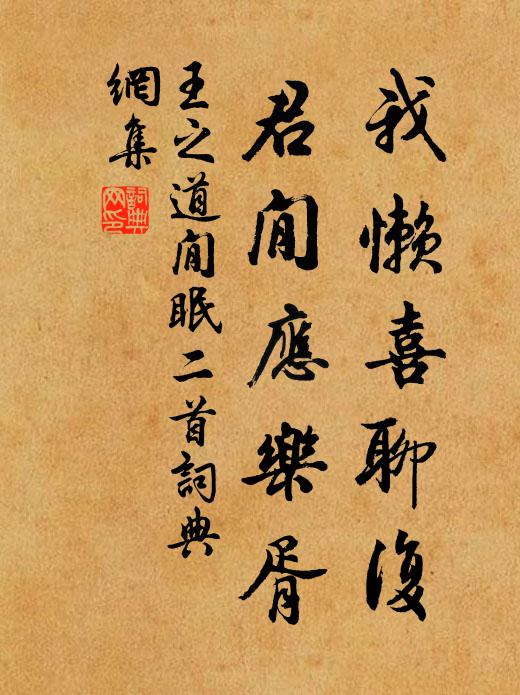 我懒喜聊復
君閒應樂胥
王之道閒眠二首詞典
網集
詞典网印